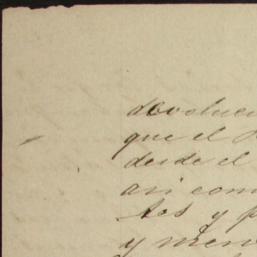 devoluci
que el
desde el
asi com
tos y p
y men